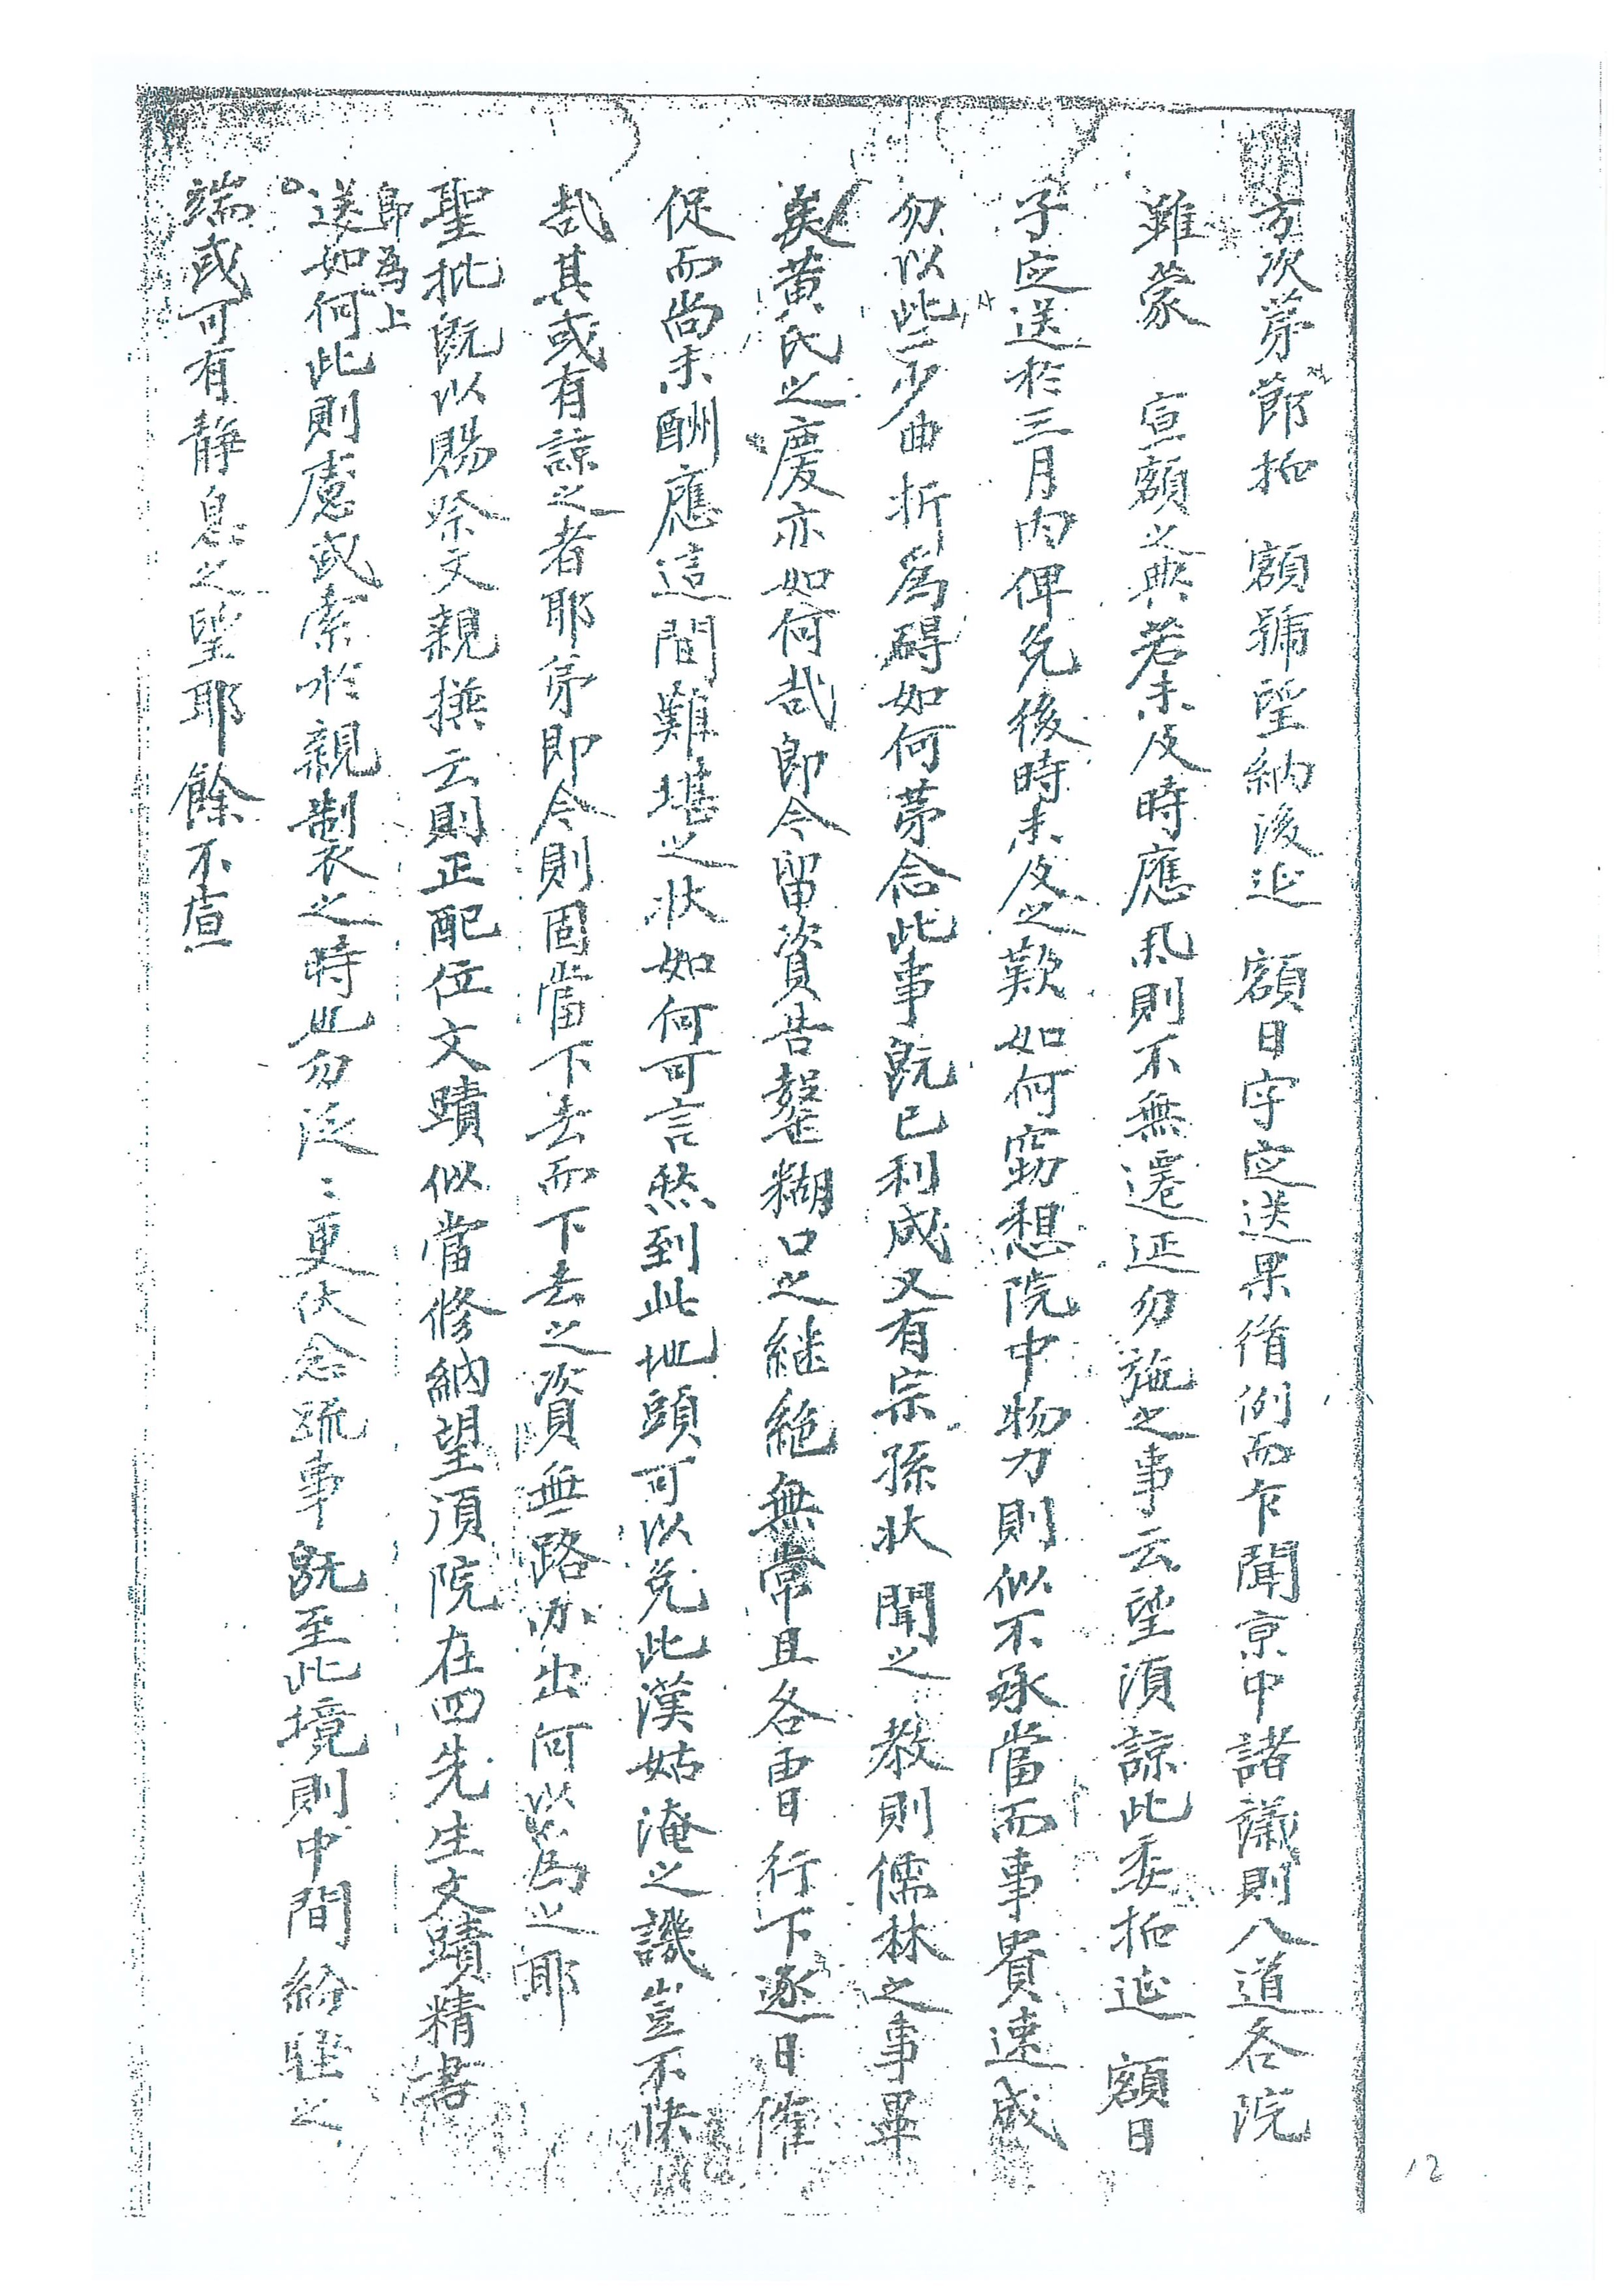 方次第節抽 額號望納後延 額日字應送果循例而乍聞京中諸議則八道各院
雖蒙 宣額之典若未及時應納則不無遷延勿施之事云望須諒此委折延 額日
子应送於三月內俾免後時未及之歎如何窃想院中物力則似不承當而事貴速成
勿以些少曲折為碍如何第念此事既已利成又有宗孫狀聞之 教則儒林之事畢
矣黃氏之慶亦如何哉即今留資告罄糊口之継絶無常且各曹行下逐日催
促而尚未酬應這間難堪之狀如何可言然到此地頭可以免此漢姑淹之譏豈不快
哉其或有諒之者耶第即今則固當下去而下去之資無路办出何以為之耶
聖批既以賜祭文親撰云則正配位文蹟似當修納望須院在四先生文蹟精書
即為上
送如何此則慮或索於親製衣之時此勿泛〻更伏念疏事既至此境則中間紛䎸之
端或可有靜息之望耶餘不宣
12